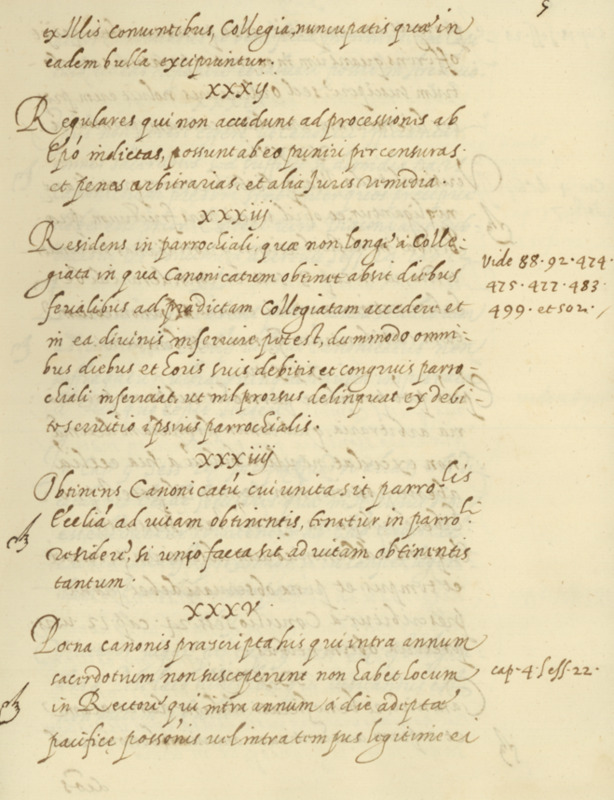 5
ex Illis conventibus, Collegia, nuncupatis quæ in
eadem bulla excipiuntur.
XXXij
Regulares qui non accedunt ad processionis ab
Epõ indictas, possunt ab eo puniri per censuras.
et penas arbitrarias, et alia Juris remedia.
XXXiij
Residens in parrochiali, quæ non longe a Colle-
giata in qua Canonicatum obtinet absit diebus
ferialibus ad prædictam Collegiatam accedere et
in ea divinis inservire potest, dummodo omni-
bus diebus et horis suis debitis et congruis parro-
chiali inserviat, ut nil prorsus delinquat ex debi-
to servitio ipsius parrochialis.
Vide 88. 92. 474.
475. 477. 483
499. et 502.
XXXiiij
Obtinens Canonicatũ cui unita sit parrolis
Ecclia ad vitam obtinentis, tenetur in parroli
residere, si unjo facta sit ad vitam obtinentis
tantum.
XXXV
Poena canonis præscripta his qui intra annum
sacerdotium non susceperunt non habet locum
cap. 4. sess. 22.
in Rectore qui intra annum a die adeptæ
pacificę possõnis vel intra tempus legitime ei